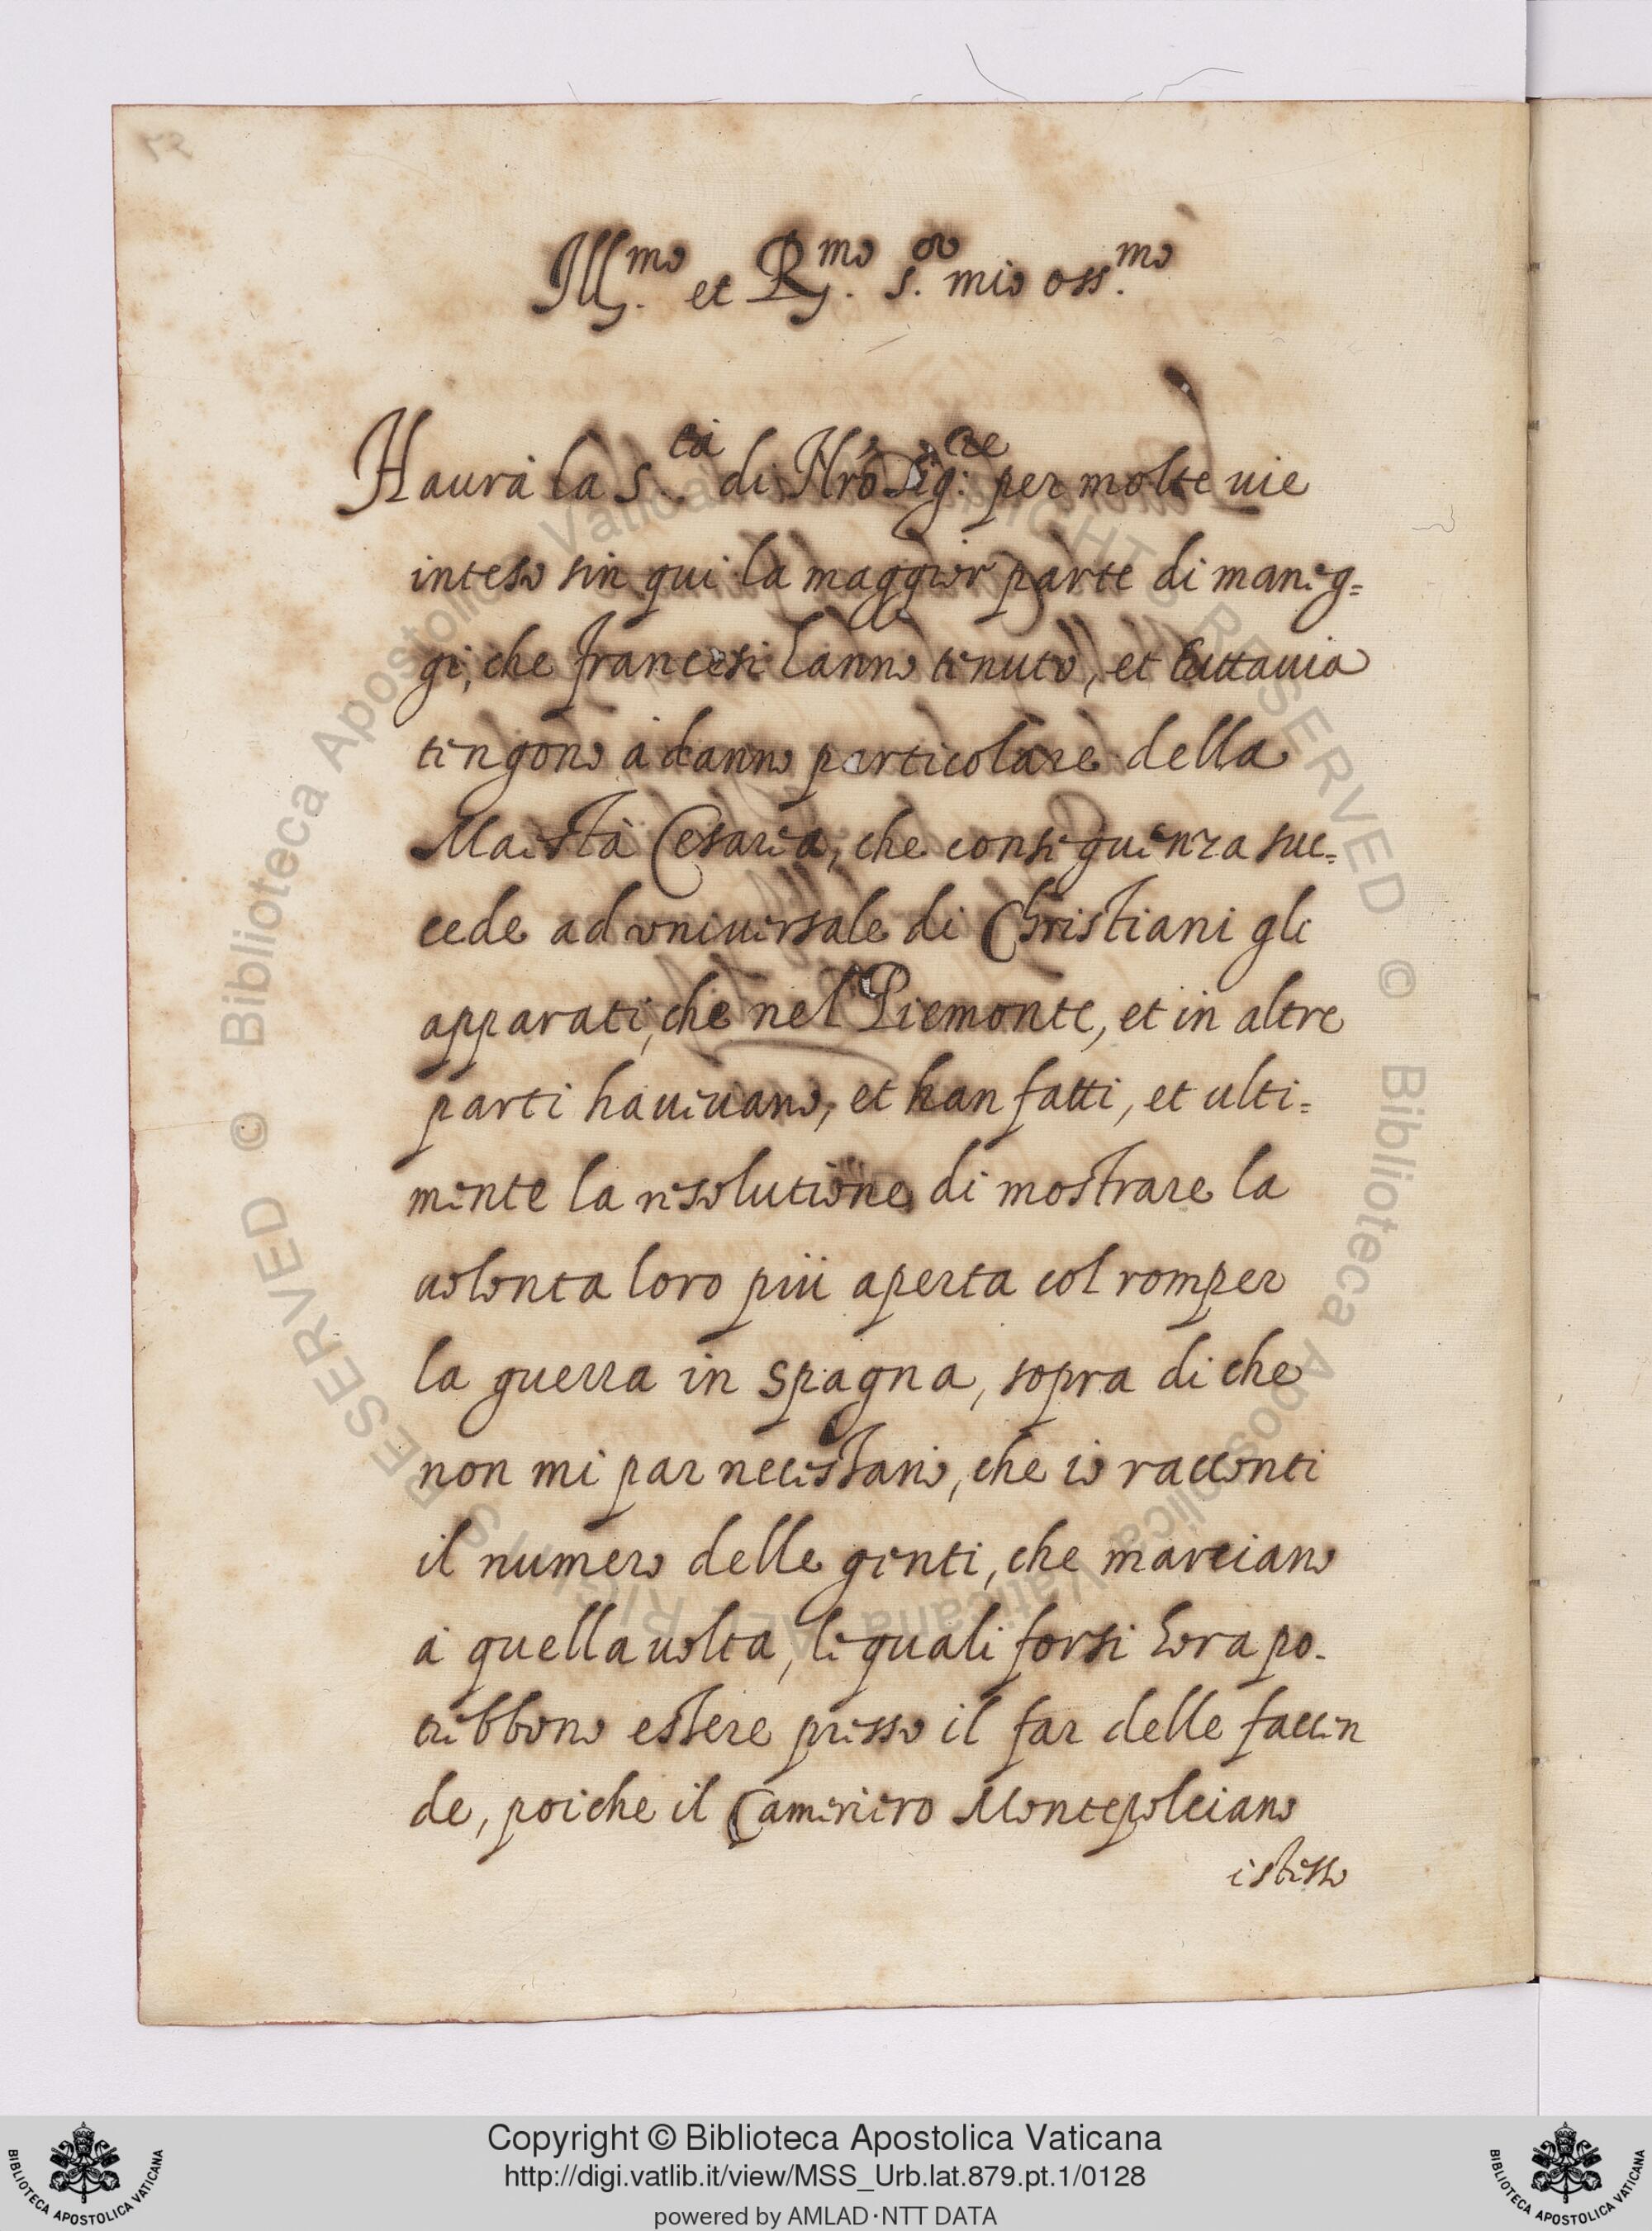 52
Ill.mo et R.mo s.or mio oss.mo
Haurà la S.tà di Nrõ Sig.re per molte uie
inteso sin qui la maggior parte di maneg=
gi, che francesi hanno tenuto, et tuttauia
tengono à danno particolare della
Maestà Cesarea, che conseguenza suc=
cede ad vniuersale di Christiani gli
apparati, che nel Piemonte, et in altre
parti haueuano, et han fatti, et ulti=
mente la resolutione di mostrare la
uolonta loro più aperta col romper
la guerra in Spagna, sopra di che
non mi par necessario, che io racconti
il numero delle genti, che marciano
à quella uolta, le quali forsi hora po-
trebbono essere presso il far delle faccen
de, poiche il Cameriero Montepolciano
istesso
© Biblioteca Apostolica Vaticana ALL RIGHTS RESERVED
© Biblioteca Apostolica Vaticana ALL RIGHTS RESERVED
Copyright © Biblioteca Apostolica Vaticana
http://digi.vatlib.it/view/MSS_Urb.lat.879.pt.1/0128
powered by AMLAD·NTT DATA
BIBLIOTECA APOSTOLICA VATICANA
BIBLIOTECA APOSTOLICA VATICANA